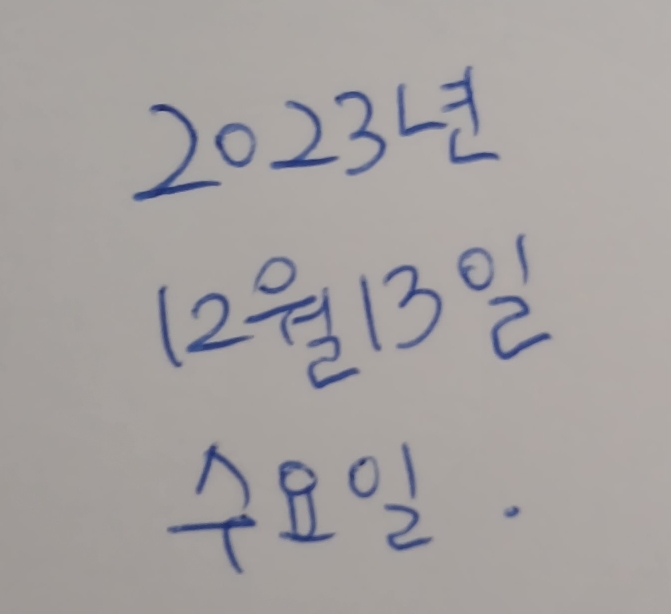 2023년
12월13일
수요일.